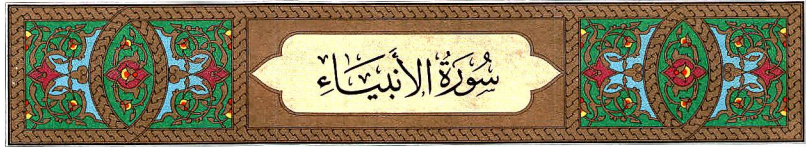 سُورَةُ الأَنبيَاءِ